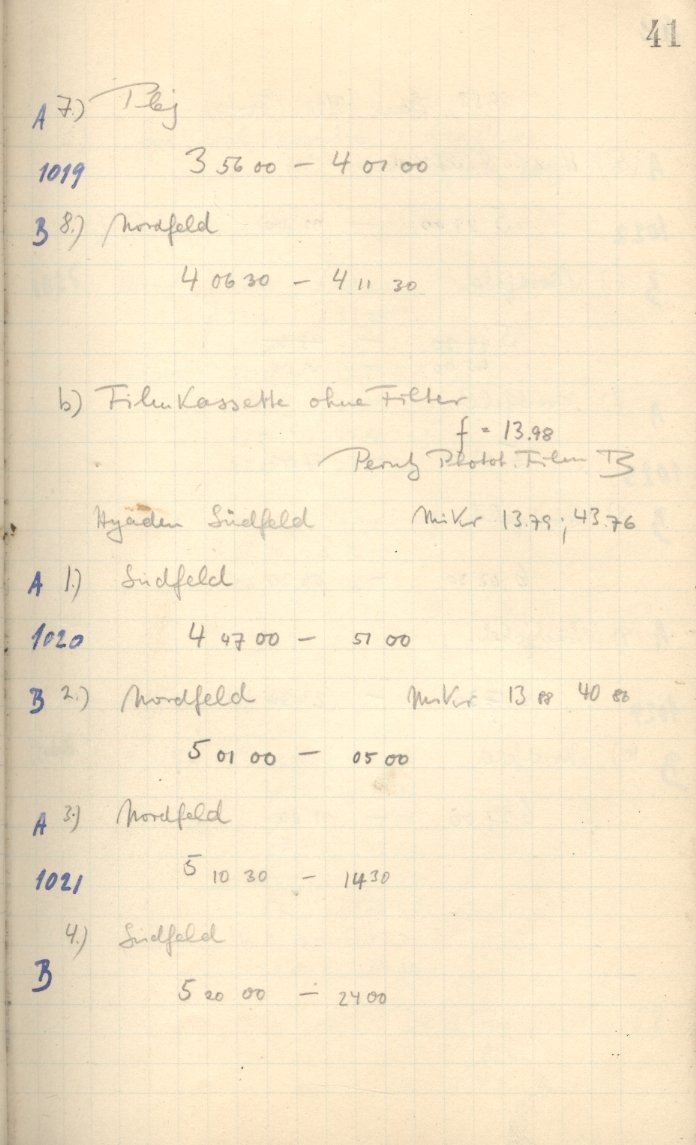 41
A 7.) Plej
1019 3 56 00 – 4 01 00
B 8.) Nordfeld
4 06 30 – 4 11 30
b) Filmkassette ohne Filter
f = 13.98
Perutz Photot. Film B
Hyaden Südfeld Mikr 13.79 ; 43.76
A 1.) Südfeld
1020 4 47 00 – 51 00
B 2.) Nordfeld Mikr 13 88 40 86
5 01 00 – 05 00
A 3.) Nordfeld
1021 5 10 30 – 14 30
4.) Südfeld
B
5 20 00 – 24 00